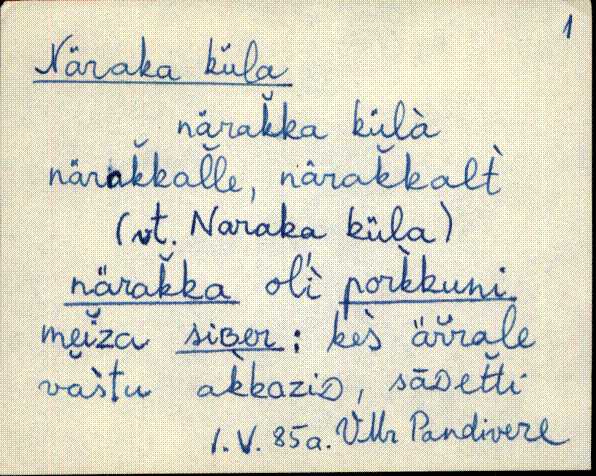 1
Näraka küla
närak̆ka külà
närak̆kal̆le, närak̆kalt̀
(vt. Naraka küla)
närak̆ka oĺì pork̀kuni
meiž̆a siʙer; kès̀ äv̆rale
văs̀tu ak̀kaziᴅ, sāᴅet̆ti
1. V. 85a. VMr Pandivere